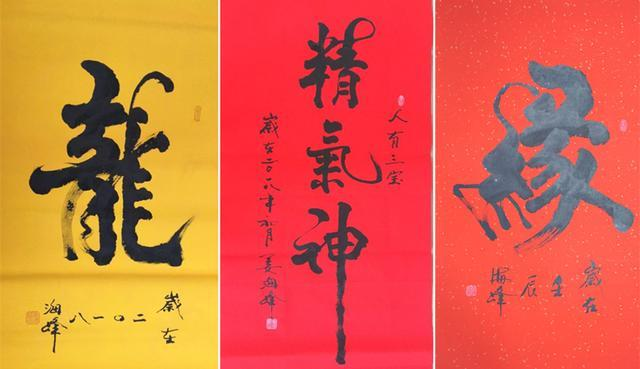 龍
歲在
二〇一八
海峰
人有三宝
精氣神
歲在二〇一八年 月姜海峰
緣
歲在
壬
辰
海峰